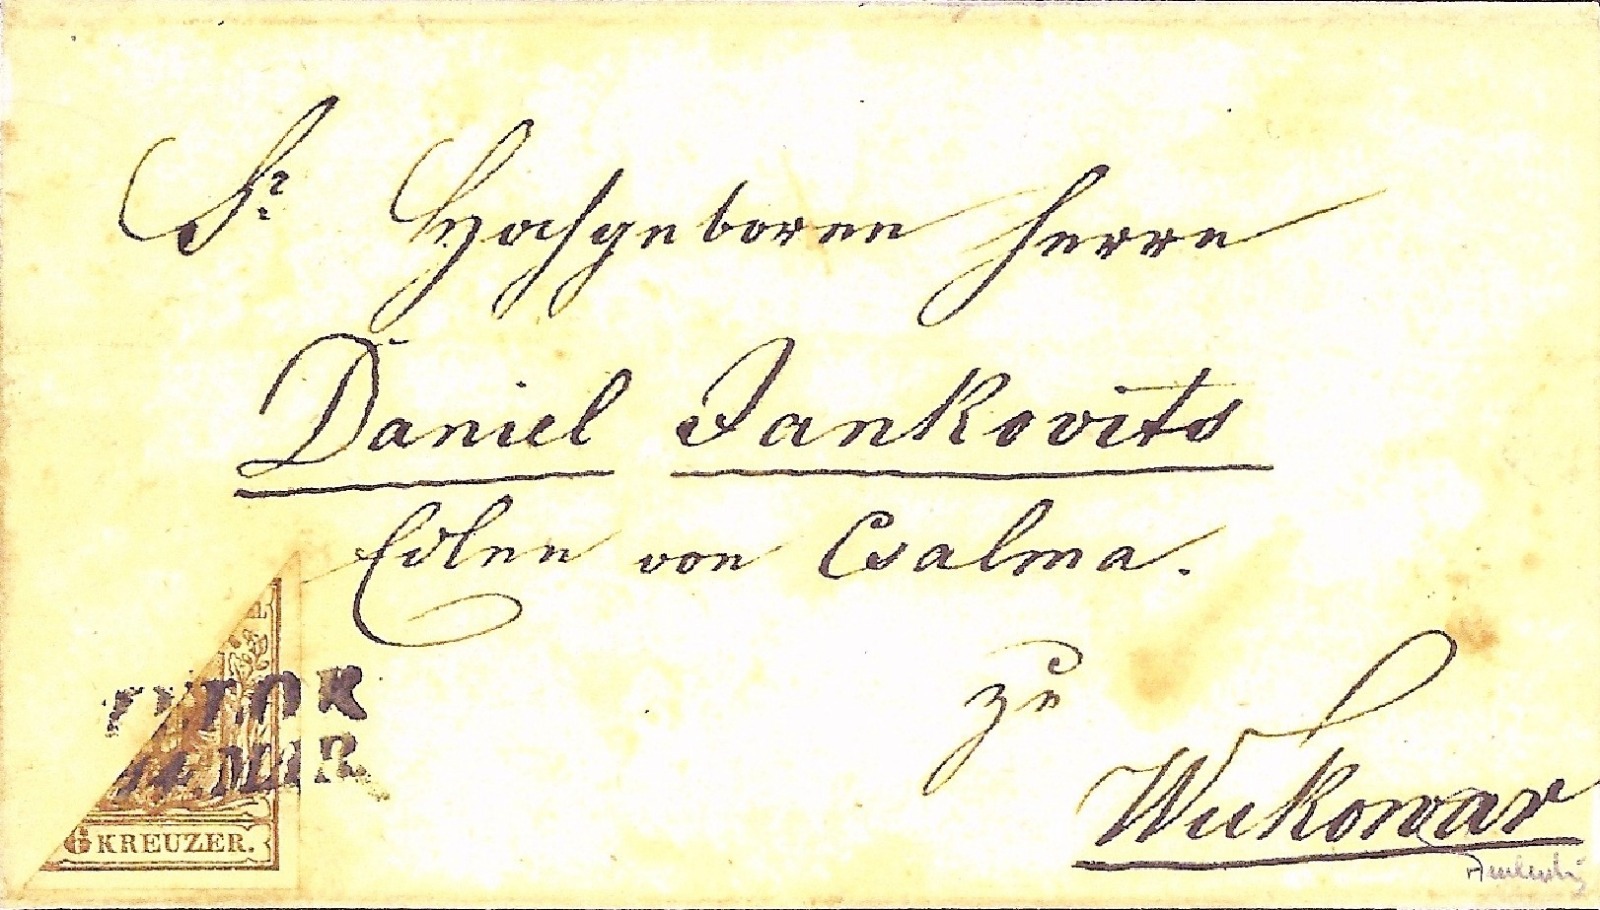 Sr Hochgeboren Herrn
Daniel Jankovits
Edlen von Csalma.
zu
Wukowar
6 KREUZER.
MAR